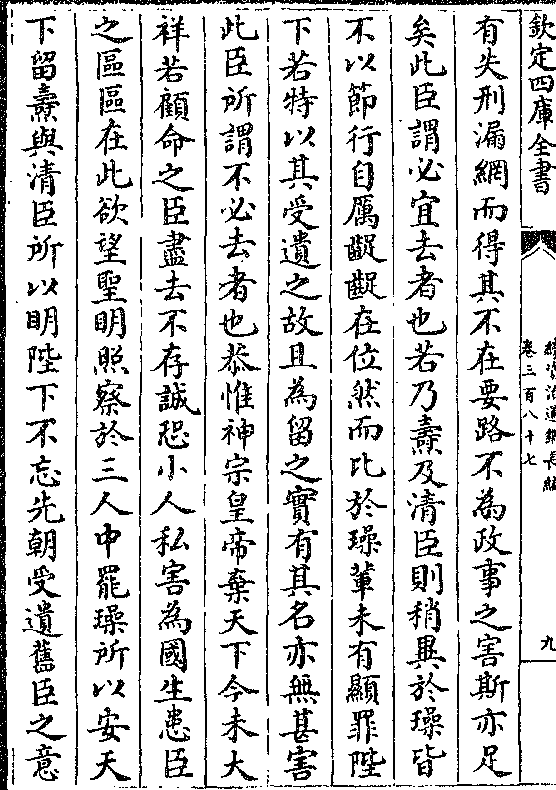 欽定四庫全書
續資治通鑑長編
卷三百八十七
九
有失刑漏網而得其不在要路不為政事之害斯亦足
矣此臣謂必宜去者也若乃燾及清臣則稍異於璪皆
不以節行自厲齪齪在位然而比於璪輩未有顯罪陛
下若特以其受遺之故且為留之實有其名亦無甚害
此臣所謂不必去者也恭惟神宗皇帝棄天下今未大
祥若顧命之臣盡去不存誠恐小人私害為國生患臣
之區區在此欲望聖明照察於三人中罷璪所以安天
下留燾與清臣所以明陛下不忘先朝受遺舊臣之意